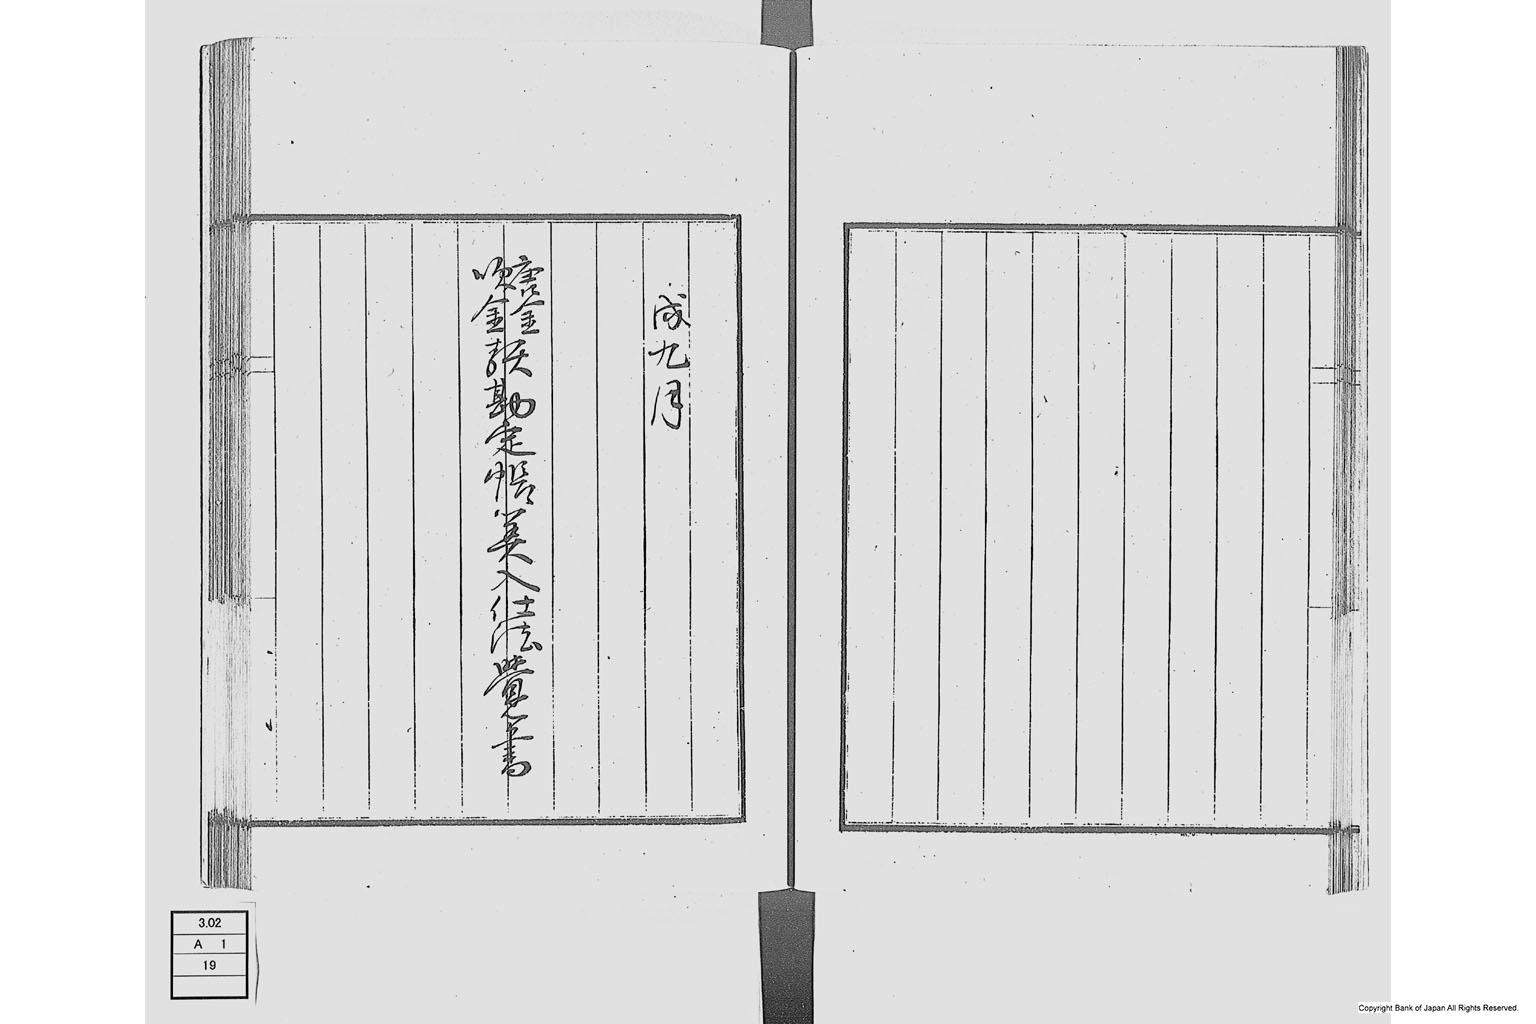 戌九月
唐金
吹金
勘定帳入仕法覺書
3.02
A 1
19
Copyright Bank of Japan All Rights Reserved.